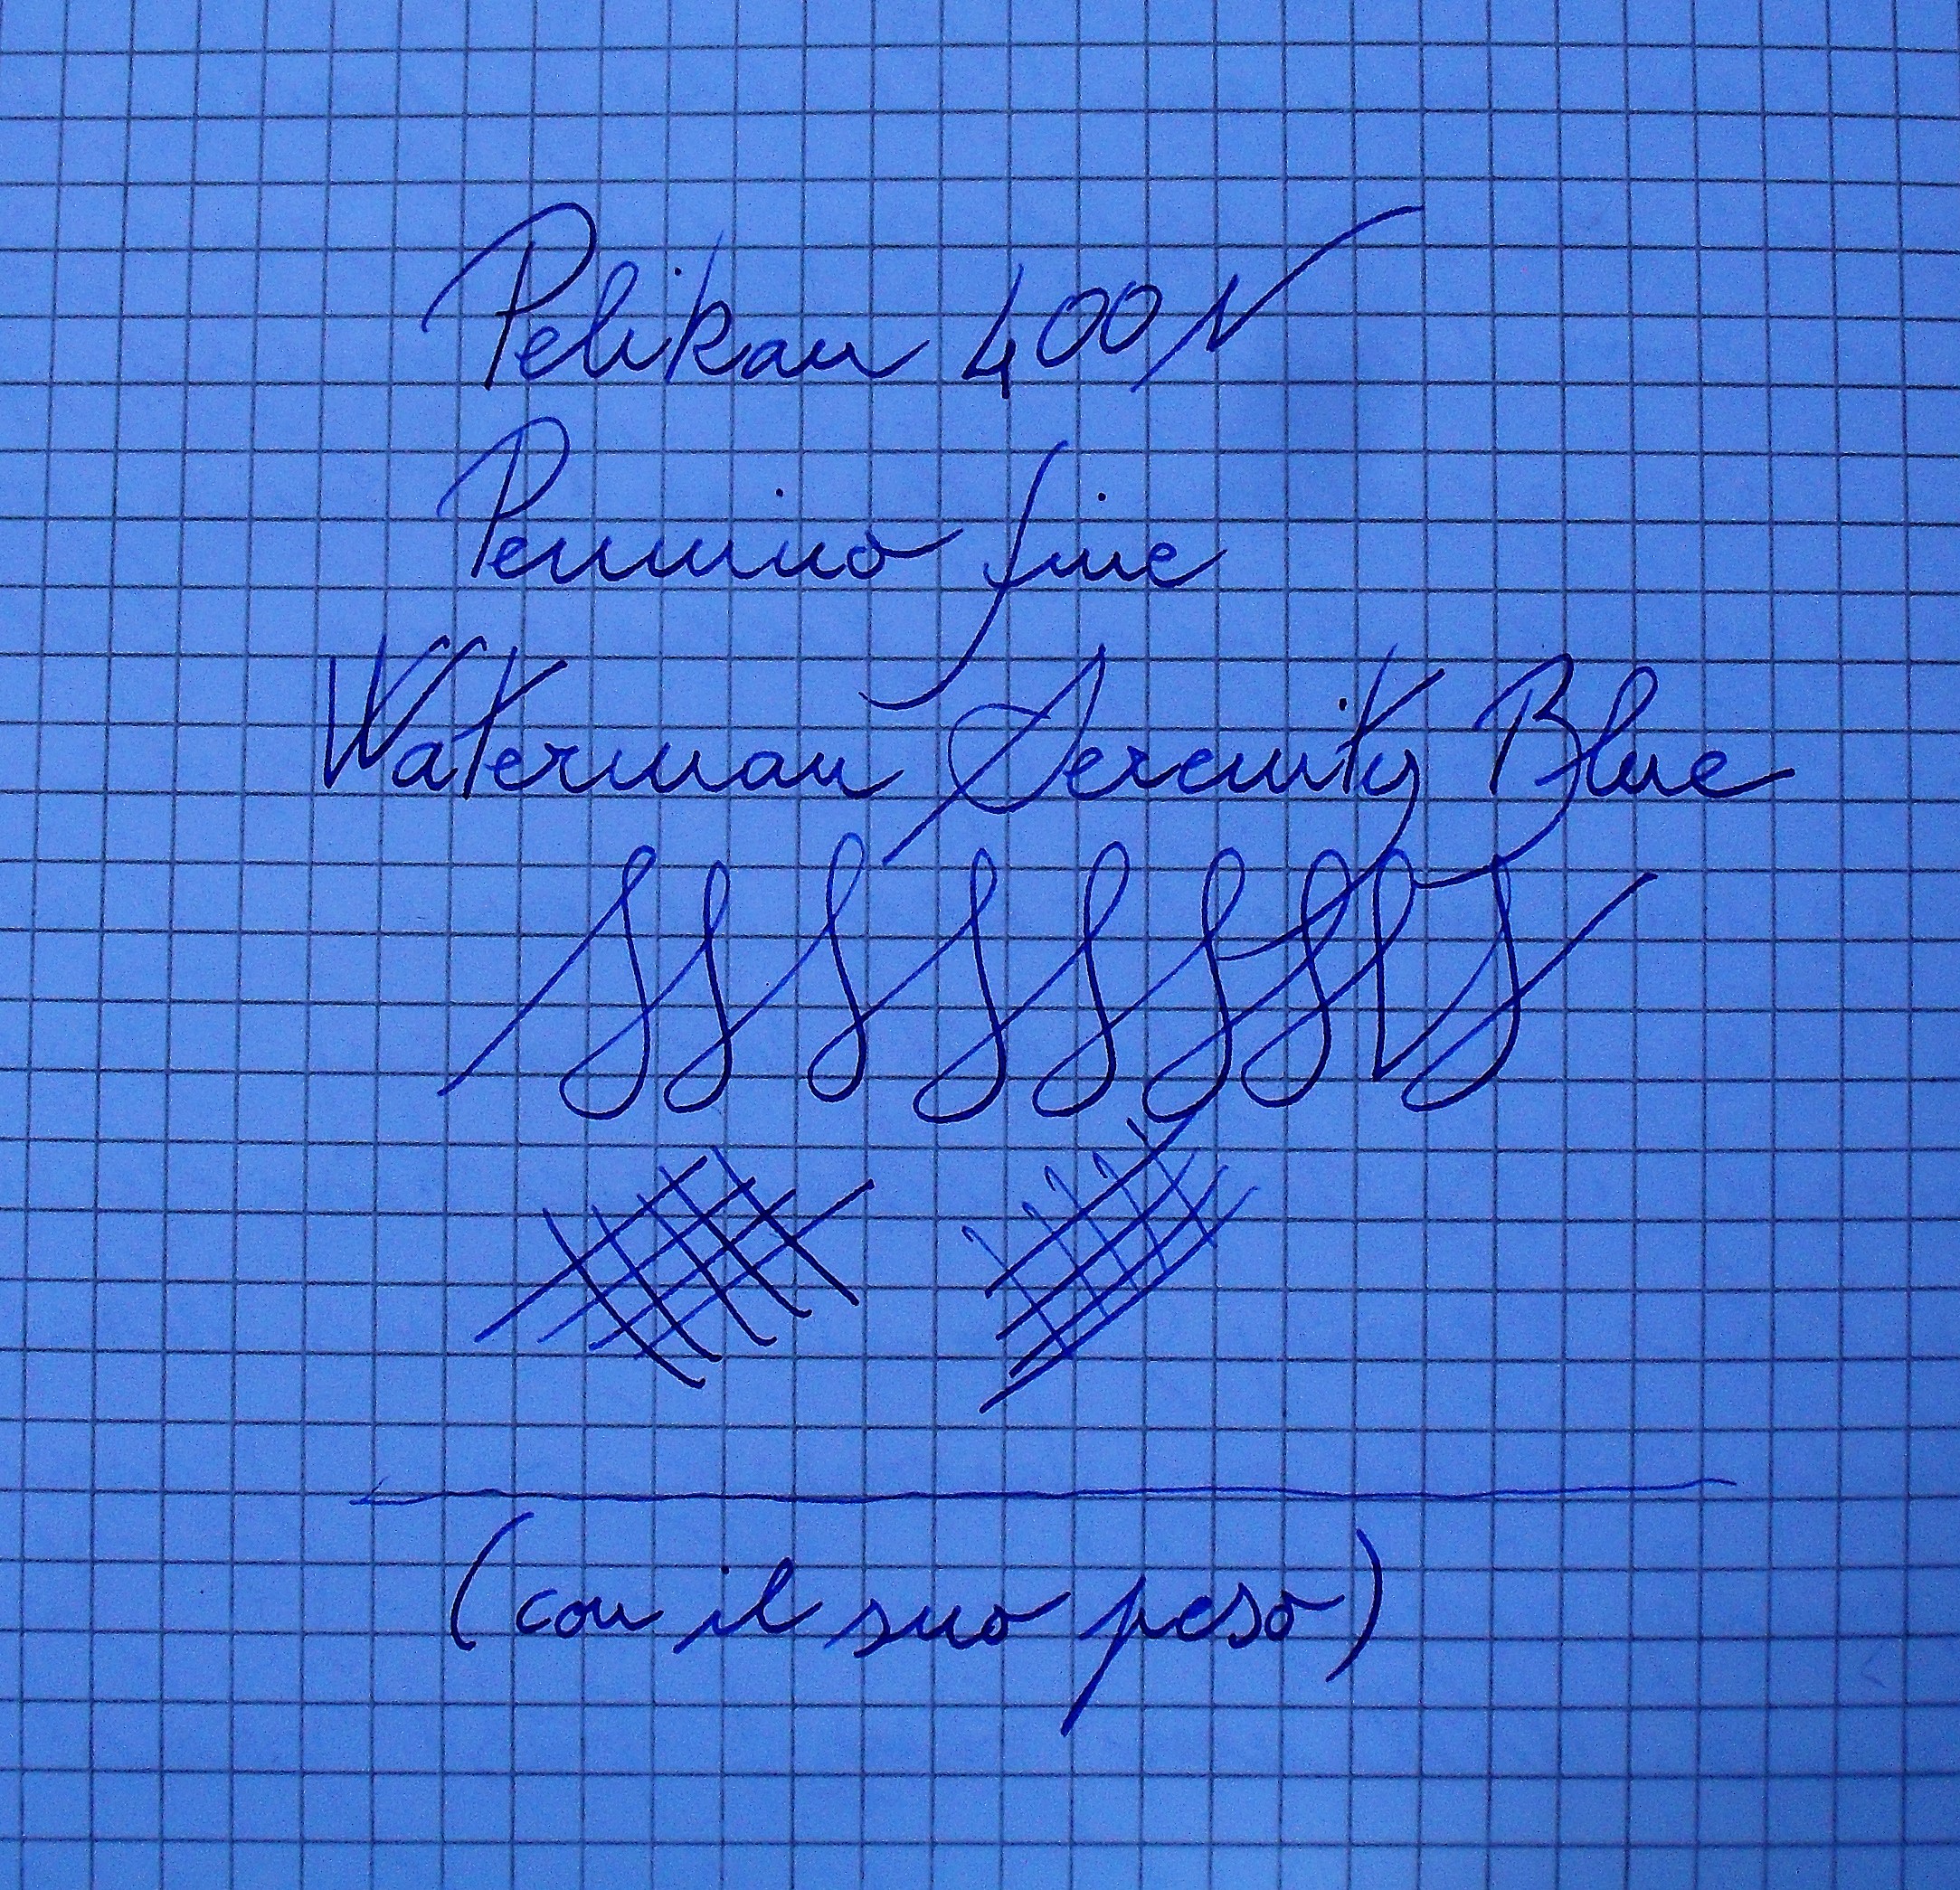 Pelikan 400N
Pennino fine
Waterman Serenity Blue
(con il suo peso)